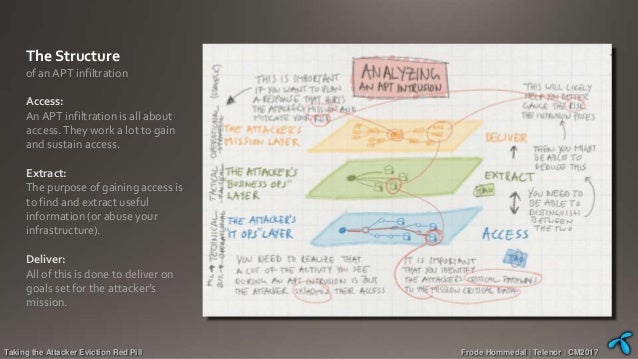 The Structure
of an APT infiltration
Access:
An APT infiltration is all about
access. They work a lot to gain
and sustain access.
Extract:
The purpose of gaining access is
to find and extract useful
information (or abuse your
infrastructure).
Deliver:
All of this is done to deliver on
goals set for the attacker's
mission.
ANALYZING
AN APT INTRUSION
THIS IS IMPORTANT
IF YOU WANT TO PLAN
A RESPONSE THAT HURTS
THE ATTACKERS MISSION AND
MITIGATE YOUR RISK
THIS WILL LIKELY
HELP YOU BETTER
GAUGE THE RISK
THE INTRUSION POSES
THE ATTACKER'S
MISSION LAYER
DELIVER
THEN YOU MIGHT
BE ABLE TO
DEDUCE THIS
THE ATTACKER'S
"BUSINESS OPS"
LAYER
EXTRACT
TAO
YOU NEED TO
BE ABLE TO
DISTINGUISH
BETWEEN
THE TWO
THE ATTACKER'S
"IT OPS" LAYER
TAO
ACCESS
TECHNICAL TACTICAL OPERATIONAL
OPERATIONAL
YOU NEED TO REALIZE THAT
A LOT OF THE ACTIVITY YOU SEE
DURING AN APT INTRUSION IS BUT
THE ATTACKER SYSADMIN THEIR ACCESS
IT IS IMPORTANT
THAT YOU IDENTIFY
THE ATTACKERS CRITICAL PATHWAYS
TO THE MISSION CRITICAL DATA
Taking the Attacker Eviction Red Pill
Frode Hommedal | Telenor | CM2017